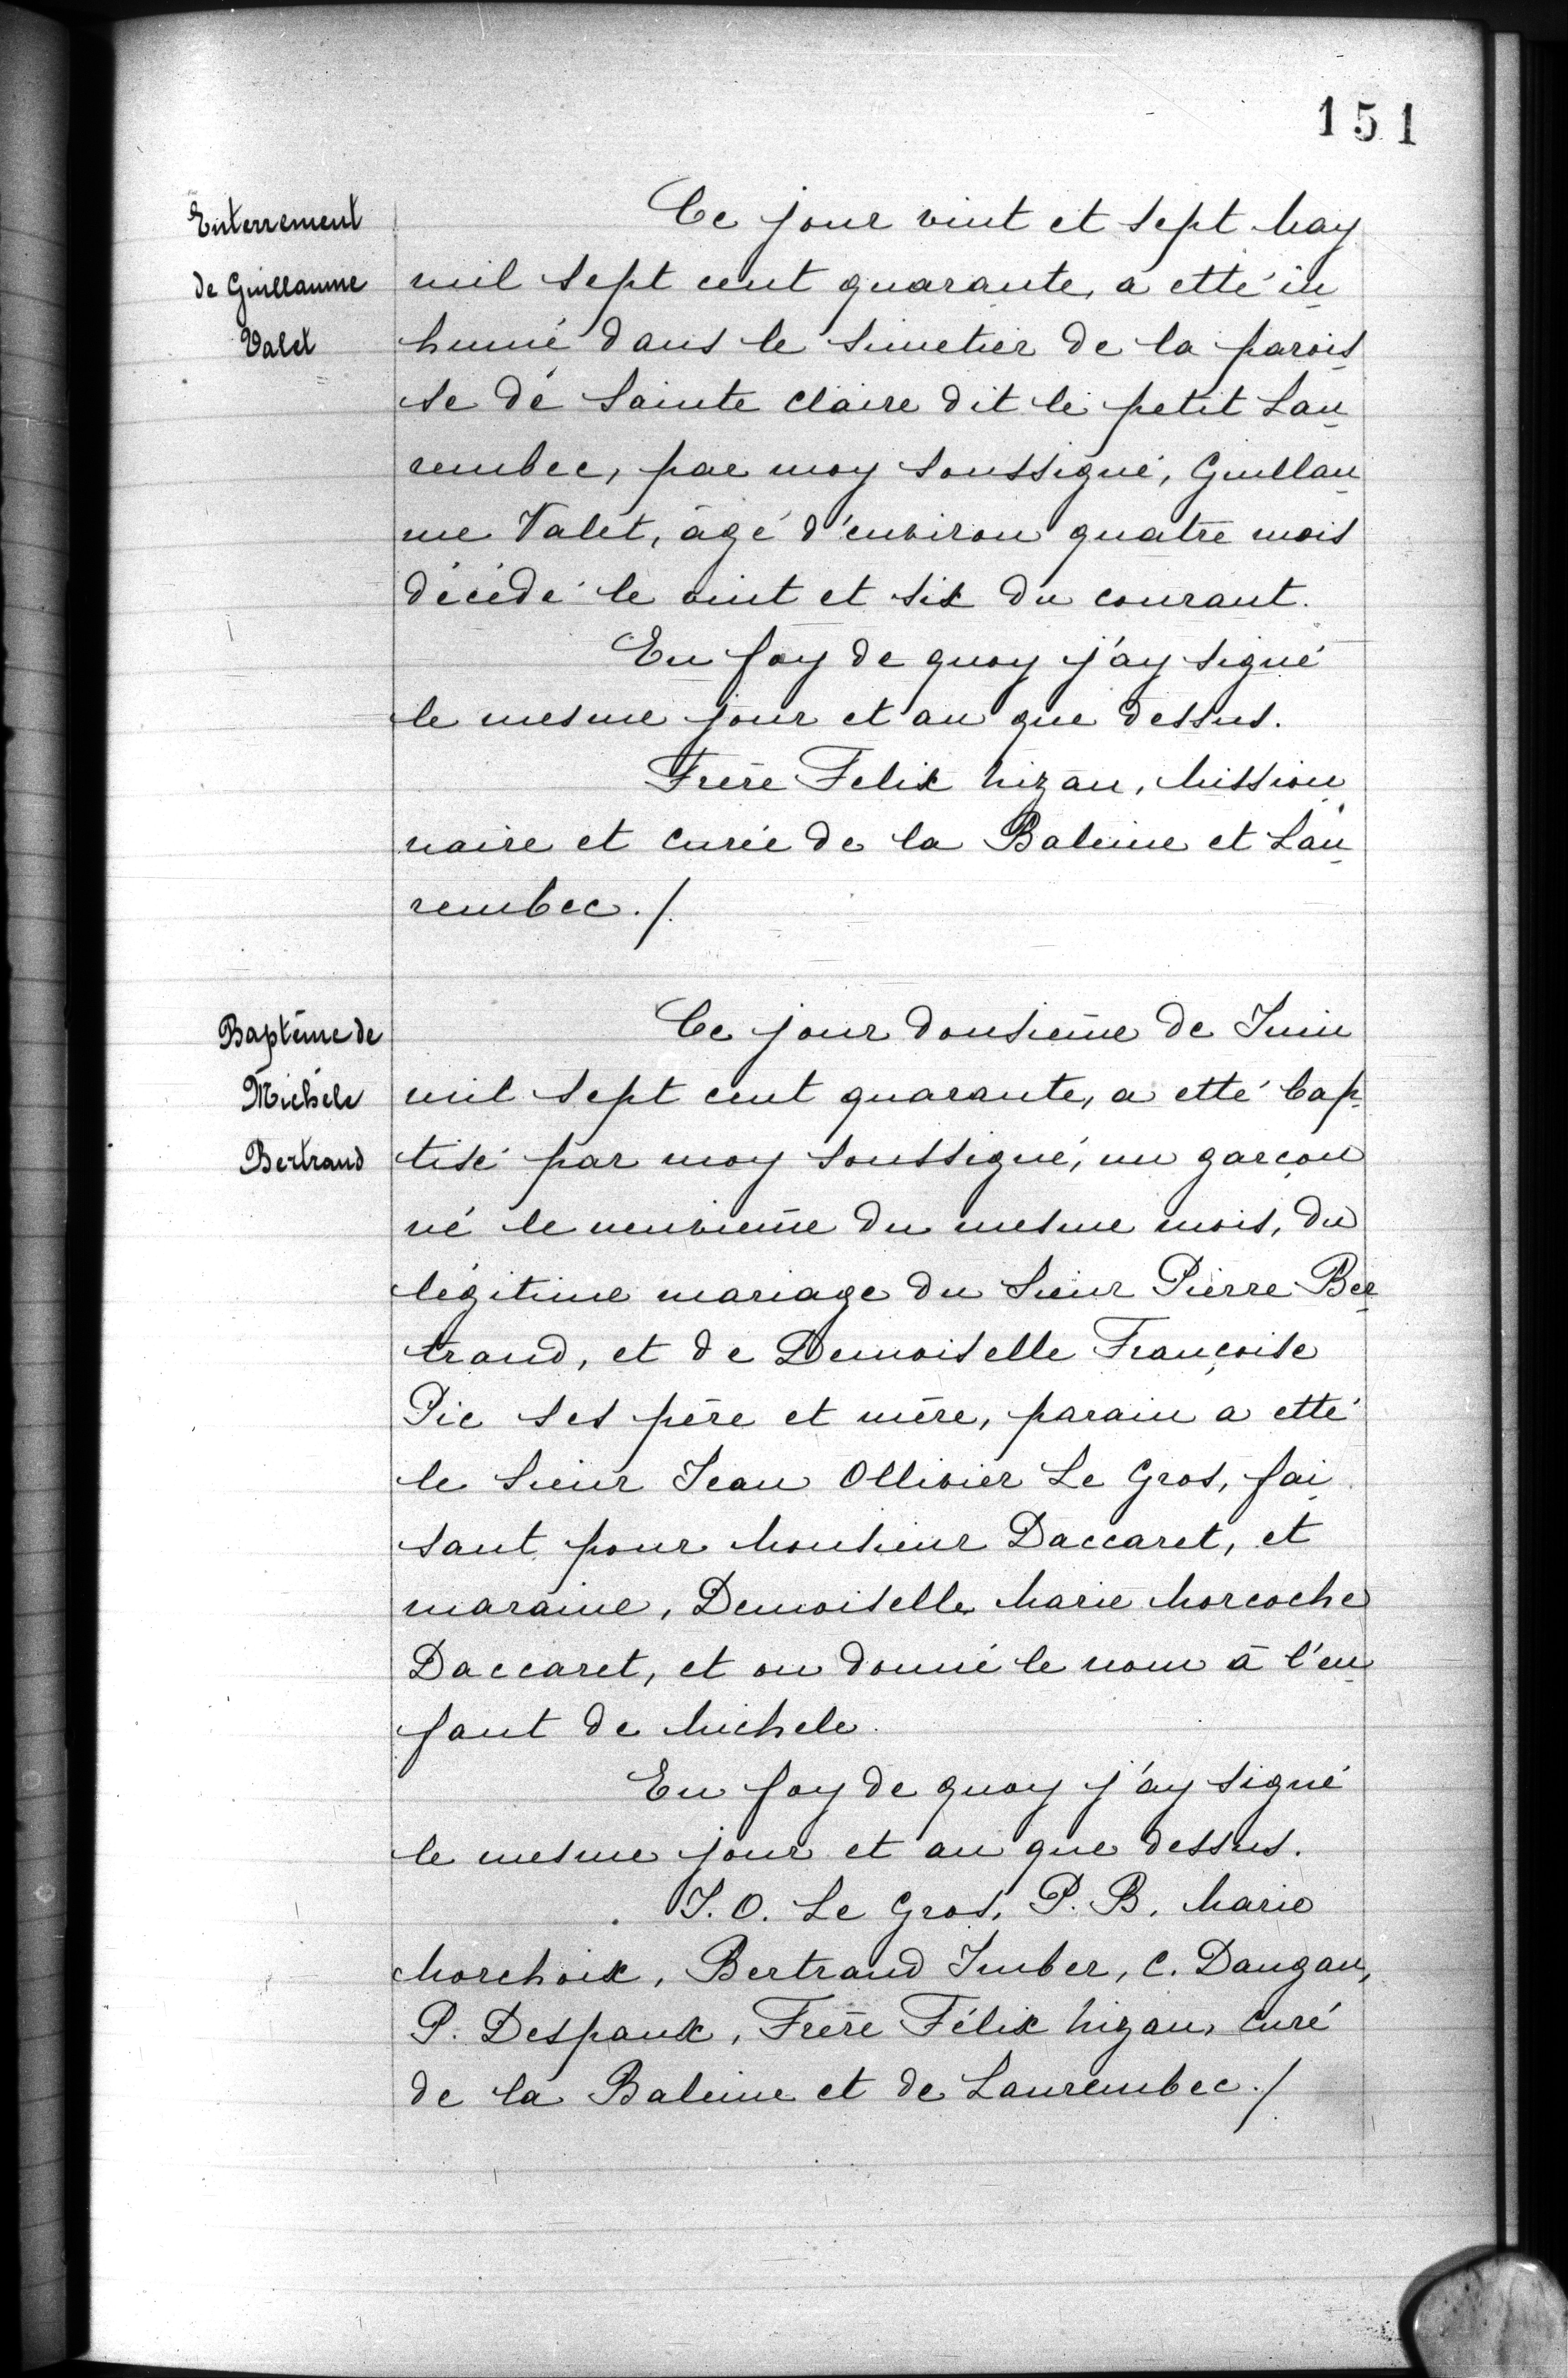 151
Enterrement
de Guillaume
Valet
Ce jour vint et sept May
mil sept cent quarante, a etté in
humé dans le simetier de la parois
se de Sainte Claire dit le petit Lau
rembec, par moy soussigné, Guillau
me Valet, âgé d'environ quatre mois
décédé le vint et six du courant.
En foy de quoy j'ay signé
le mesme jour et an que dessus.
Frère Felix Nizan, Mission
naire et curée de la Baleine et Lau
rembec./.
Baptême de
Michele
Bertrand
Ce jour dousième de Juin
mil sept cent quarante, a etté bap
tisé par moy soussigné, un garçon
né le neuvième du mesme mois, du
légitime mariage du Sieur Pierre Ber
trand, et de Demoiselle Françoise
Pic ses père et mère, parain a etté
le Sieur Jean Ollivier Le Gros, fai
sant pour Monsieur Daccaret, et
maraine, Demoiselle Marie Morcoche
Daccaret, et on donné le nom à l'en
fant de Michele.
En foy de quoy j'ay signé
le mesme jour et an que dessus.
J. O. Le Gros, P. B. Marie
Morchoix, Bertrand Imber, C. Daugau,
P. Despaux, Frère Félix Nizan, curé
de la Baleine et de Laurembec./